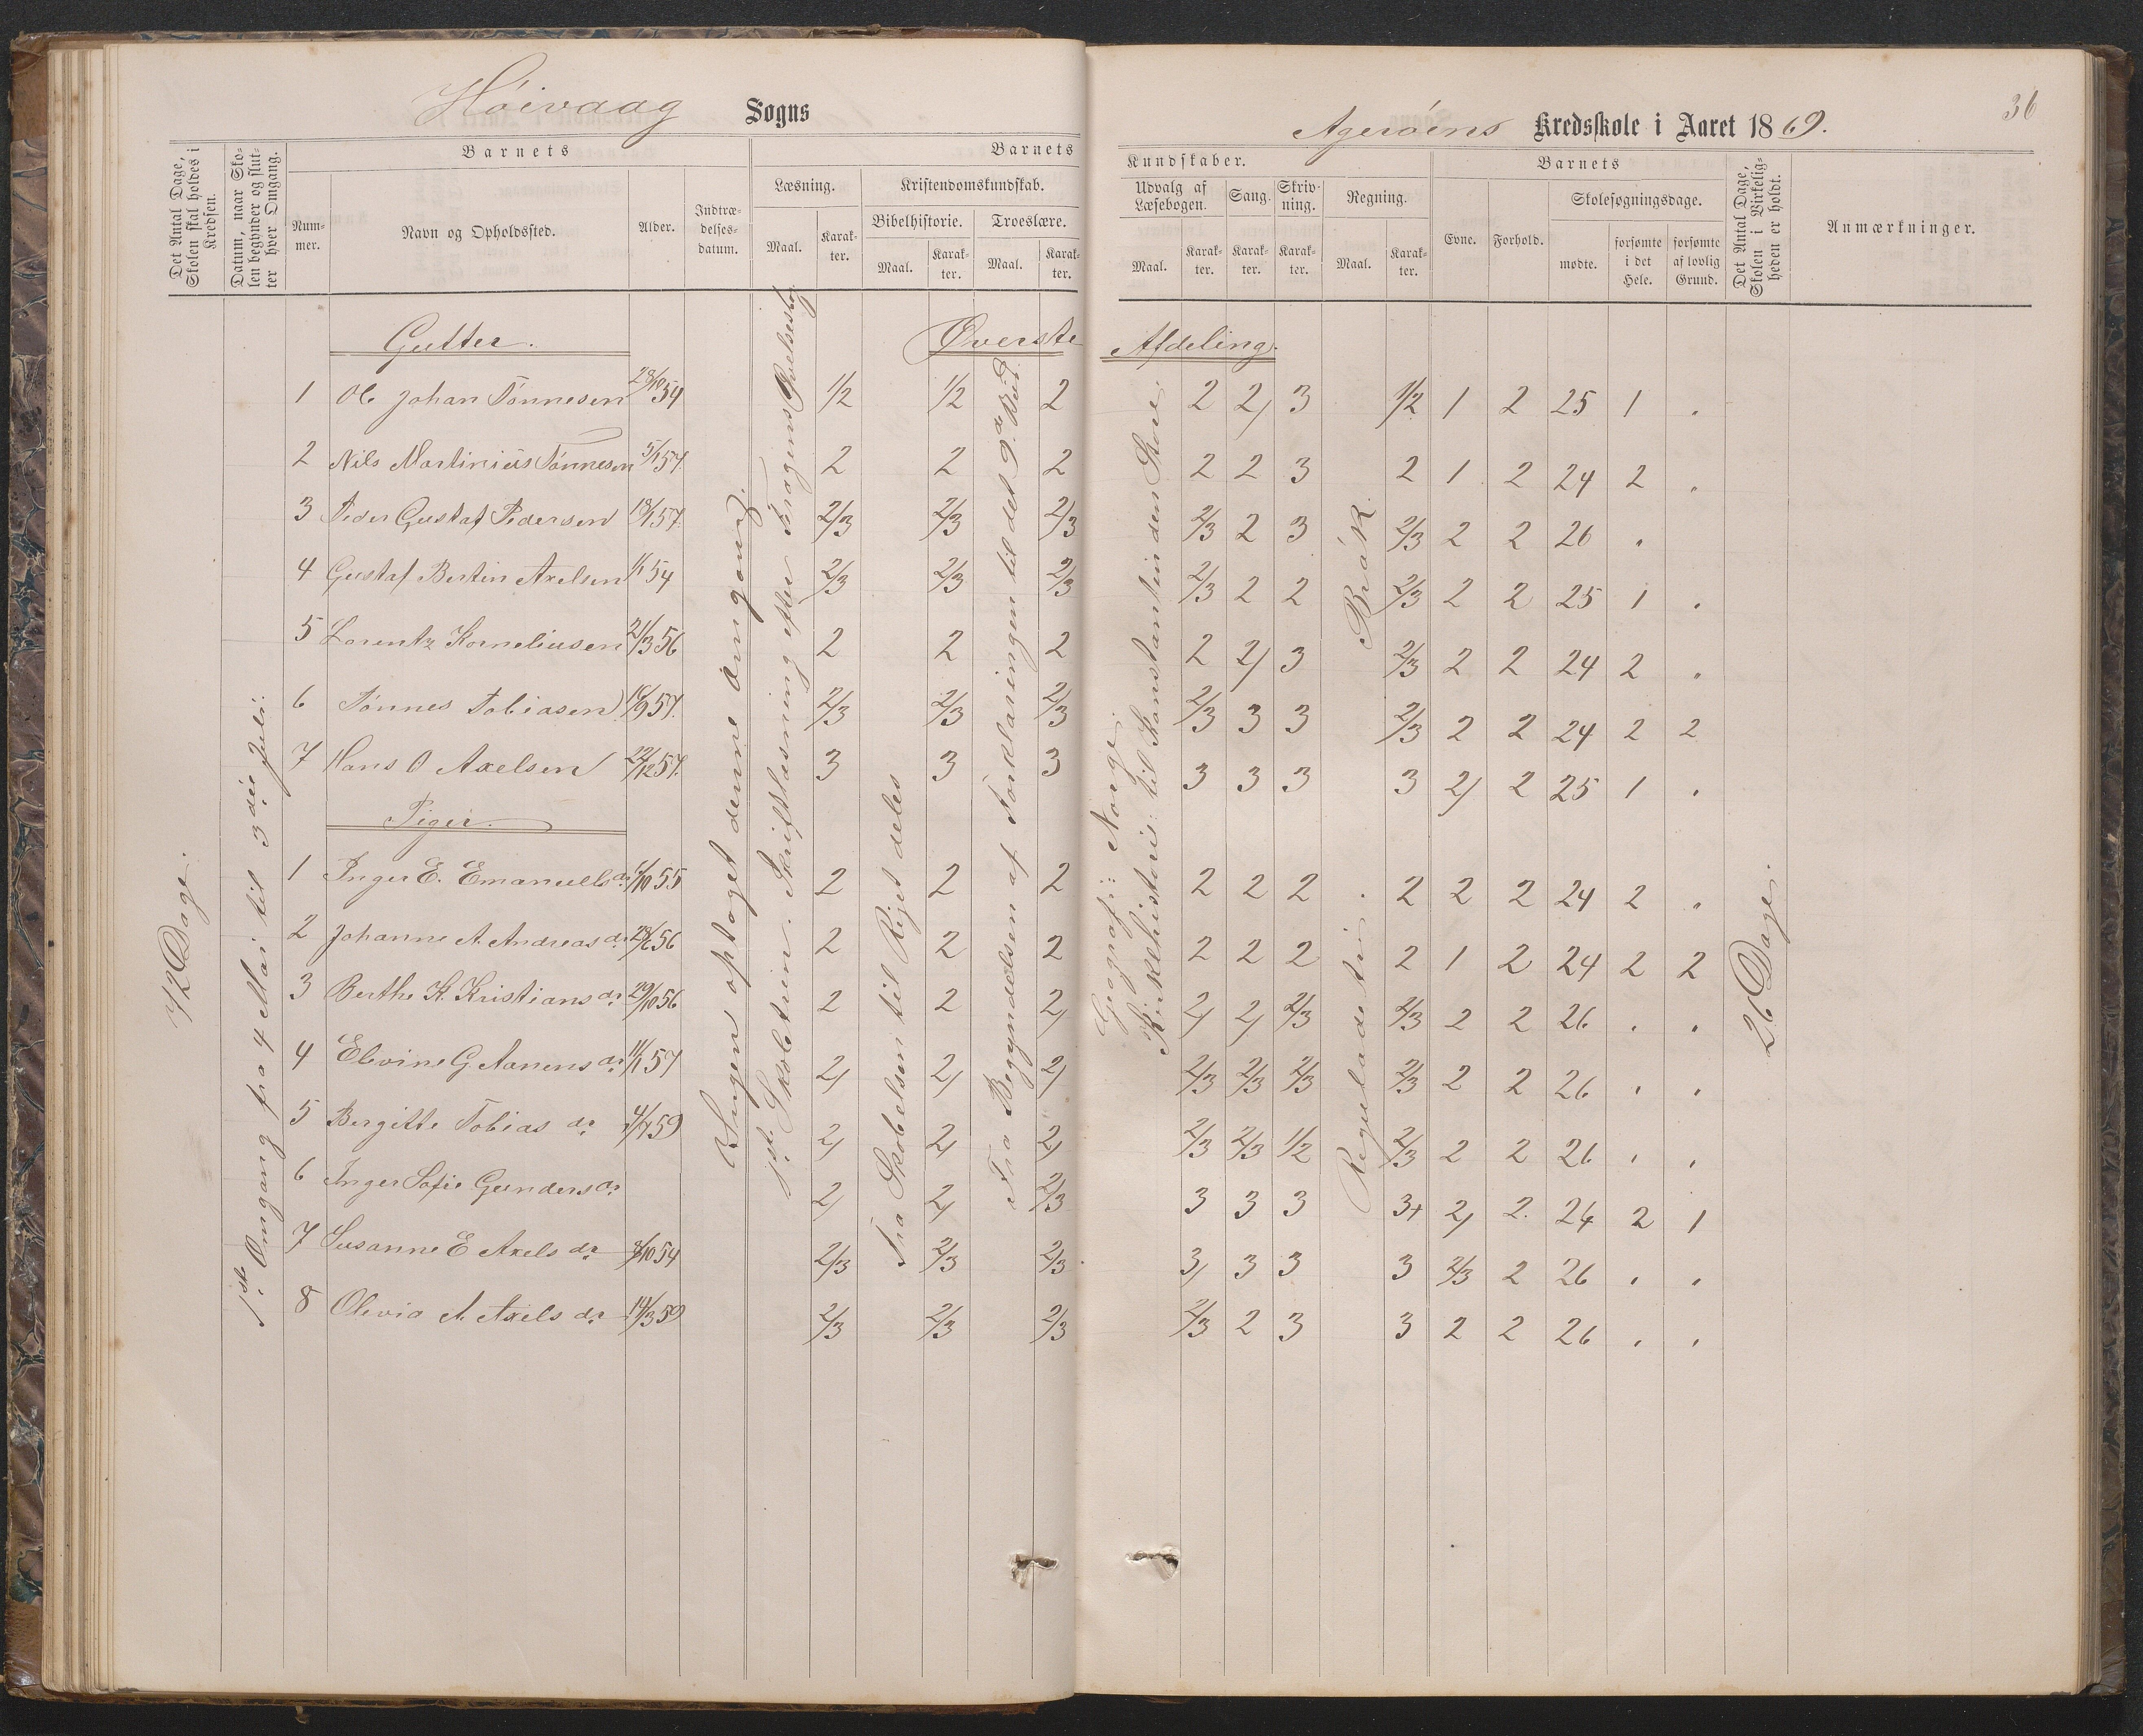 Höivaag Sogns
Agerøens Kredsskole i Aaret 1869.
36
Det Antal Dage, Skolen skal holdes i Kredsen.
Datum, naar Skolen begynder og slutter hver Omgang.
Barnets
Nummer.
Navn og Opholdssted.
Alder.
Indtrædelsesdatum.
Barnets
Læsning.
Maal.
Karakter.
Kristendomskundskab.
Bibelhistorie.
Maal.
Karakter.
Troeslære.
Maal.
Karakter.
Kundskaber.
Udvalg af Læsebogen.
Maal.
Karakter.
Sang.
Karakter.
Skrivning.
Karakter.
Regning.
Maal.
Karakter.
Barnets
Evne.
Forhold.
Skolesøgningsdage.
mødte.
forsømte i det Hele.
forsømte af lovlig Grund.
Det Antal Dage, Skolen i Virkeligheden er holdt.
Anmærkninger.
42 Dage.
1ste Omgang fra 4 Mai til 3die Juli.
Ingen optaget denne Omgang.
1ste Skoletrin. Skriftlæsning efter
Fra Skabelsen til Riget deles
Fra Begyndelsen af Forklaringen til det 9de Bud.
Geografi: Norge.
Kirkehistorie: til Konstantin den Store.
Regula de tri.
Brøk
26 Dage.
Gutter. Øverste Afdeling.
1 Ole Johan Tønnesen 28/10 54 1/2 1/2 2 2 2/ 3 1/2 1 2 25 1 "
2 Nils Martinius Tønnesen 5/1 57. 2 2 2 2 2 3 2 1 2 24 2 "
3 Peder Gustaf Pedersen 18/1 57. 2/3 2/3 2/3 2/3 2 3 2/3 2 2 26 "
4 Gustaf Bertin Axelsen 1/1 54 2/3 2/3 2/3 2/3 2 2 2/3 2 2 25 1 "
5 Lorentz Korneliusen 21/3 56 2 2 2 2 2/ 3 2/3 2 2 24 2 "
6 Tønnes Tobiasen 16/9 57. 2/3 2/3 2/3 2/3 3 3 2/3 2 2 24 2 2
7 Hans O Axelsen 22/12 57. 3 3 3 3 3 3 3 2/ 2 25 1 "
Piger.
1 Inger E. Emanuels dr. /10 55 2 2 2 2 2 2 2 2 2 24 2 "
2 Johanne A. Andreas dr. 28/6 56 2 2 2 2 2 2 2 1 2 24 2 2
3 Berthe K. Kristians dr. 29/10 56 2 2 2/ 2/ 2/ 2/3 2/3 2 2 26 " "
4 Elevine G Aanens dr. 11/1 57 2/ 2/ 2/ 2/3 2/3 2/3 2/3 2 2 26 " "
5 Bergitte Tobias dr. 4/4 59 2/ 2/ 2/ 2/3 2/3 1/2 2/3 2 2 26 " "
6 Inger Sofie Gunders dr. 2/ 2/ 2/3 3 3 3 3+ 2/ 2. 24 2 1
7 Susanne E Axels dr. 8/10 54 2/3 2/3 2/3 3/ 3 3 3 2/3 2 26 " "
8 Olevia A. Axels dr. 14/3 59 2/3 2/3 2/3 2/3 2 3 3 2 2 26 " "